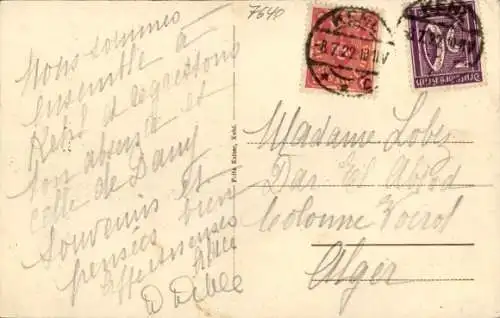 7640
Nous sommes
ensemble à
Kehl et regrettons
ton absence et
celle de Dany
Souvenirs et
pensées bien
affectueuses
D Dible
Fritz Kaiser, Kehl.
KEHL
-8.7.22
KEHL
Deutsches Reich
Madame Lobes
Dar El Abyod
Colonne Voirol
Alger